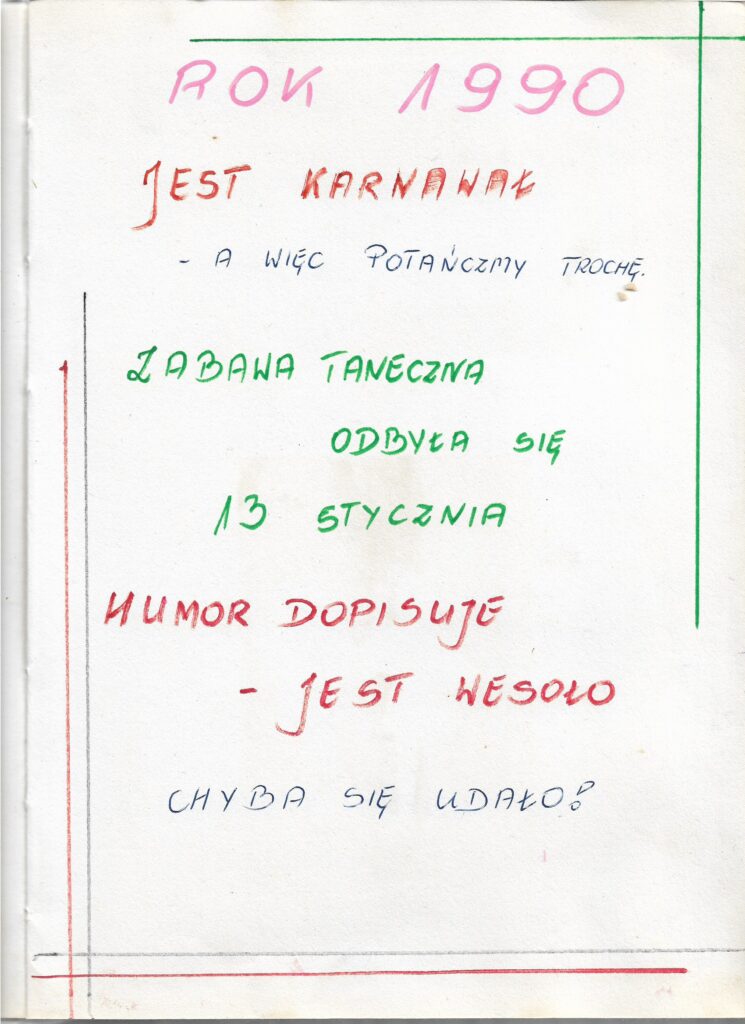 ROK 1990
JEST KARNAWAŁ
- A WIĘC POTAŃCZMY TROCHĘ.
ZABAWA TANECZNA
ODBYŁA SIĘ
13 STYCZNIA
HUMOR DOPISUJE
- JEST WESOŁO
CHYBA SIĘ UDAŁO?